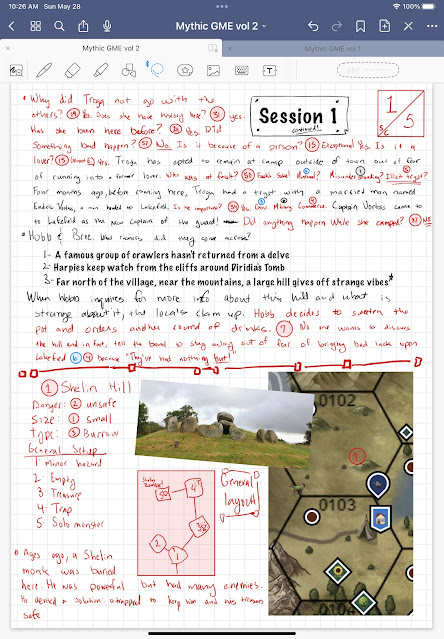 10:26 AM Sun May 28
100%
Mythic GME vol 2
Mythic GME vol 2
Mythic GME vol 1
Session 1
continued!
1
5
Why did Troga not go with the
others? 19 Yes. Does she have history here? 31 yes.
Has she been here before? Yes. Did
Something bad happen? 87 No. Is it because of a person? 15 Exceptional Yes. Is it a
lover? 15 Yes. Troga has opted to remain at camp outside of town out of fear
of running into a former lover. Who was at fault? Mutual? Misunderstanding? Illicit tryst?
Four months ago, before coming here, Troga had a tryst with a married man named
a man loaded to Lakefield. Is he important? Yes. Gov. Military Commerce. Captain
to Lakefield as the new captain of the guard! Did anything happen while she camped? NO
Hobb & Bree. What rumors did they come across?
1- A famous group of crawlers hasn't returned from a delve
2- Harpies keep watch from the cliffs around Diridia's Tomb
3- Far north of the village, near the mountains, a large hill gives off strange vibes*
When Hobb inquires for more info about this hill and what is
strange about it, the locals clam up. Hobb decides to sweeten the
pot and orders another round of drinks. 7 No one wants to discuss
the hill and in fact, tell the band to stay away out of fear of bringing bad luck upon
Lakefield 6 4 because "They've had nothing but!"
1 Shelin Hill
Danger: 2 unsafe
Size: 1 small
type: 3 Burrow
General Setup
1 minor hazard
2 Empty
3 Treasure
4 Trap
5 Solo monster
General
layout
1
2
3
4
5
0102
0103
1
Ages ago, a Shelin
monk was buried
here. He was powerful but had many enemies.
He devised a solution: a trapped to keep him and his treasures
safe